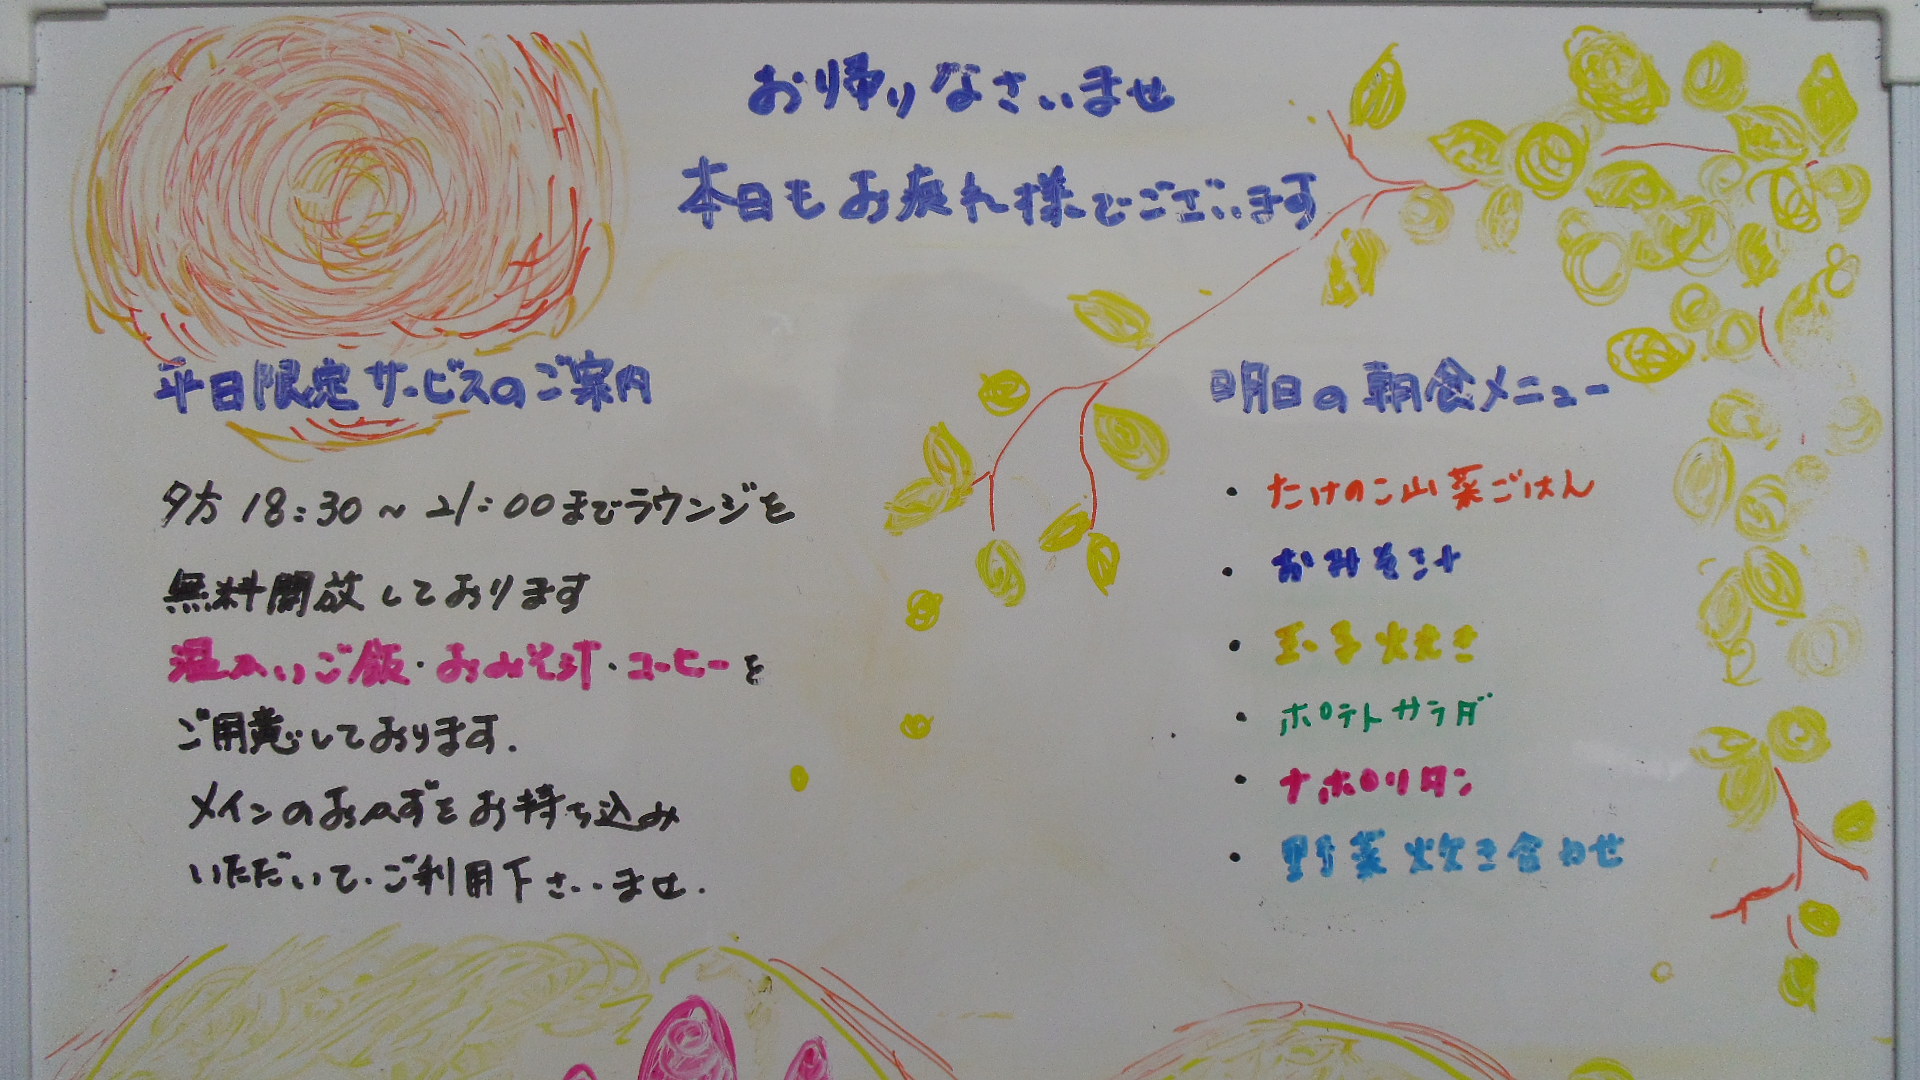 お帰りなさいませ
本日もお疲れ様でございます
平日限定サービスのご案内
夕方 18:30～21:00までラウンジを
無料開放しております
温かいご飯・おみそ汁・コーヒーを
ご用意しております.
メインのおかずをお持ち込み
いただいて、ご利用下さいませ.
明日の朝食メニュー
・たけのこ山菜ごはん
・おみそ汁
・玉子焼き
・ポテトサラダ
・ナポリタン
・野菜炊き合わせ